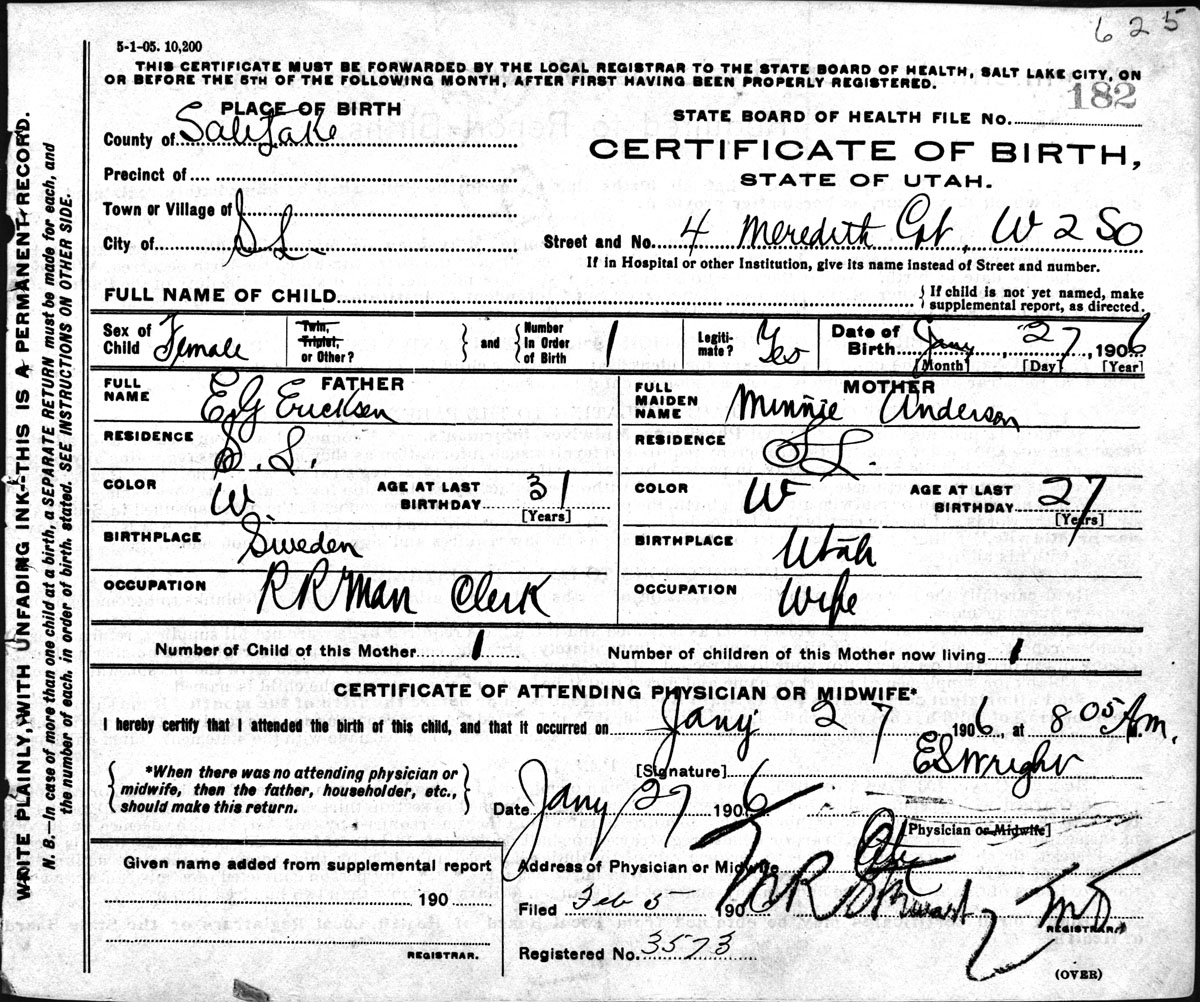 625
5-1-05. 10,200
THIS CERTIFICATE MUST BE FORWARDED BY THE LOCAL REGISTRAR TO THE STATE BOARD OF HEALTH, SALT LAKE CITY, ON
OR BEFORE THE 5TH OF THE FOLLOWING MONTH, AFTER FIRST HAVING BEEN PROPERLY REGISTERED.
182
PLACE OF BIRTH
STATE BOARD OF HEALTH FILE NO.
County of Salt Lake
CERTIFICATE OF BIRTH,
STATE OF UTAH.
Precinct of
Town or Village of
City of S L
Street and No. 4 Meredith Cpt, W 2 So
If in Hospital or other Institution, give its name instead of Street and number.
FULL NAME OF CHILD
If child is not yet named, make
supplemental report, as directed.
Sex of Child Female
Twin, Triplet, or Other?
and
Number in Order of Birth 1
Legitimate? Yes
Date of Birth Jany 27, 1906
[Month] [Day] [Year]
FATHER
FULL NAME E G Ericksen
RESIDENCE S. L.
COLOR W
AGE AT LAST BIRTHDAY 31 [Years]
BIRTHPLACE Sweden
OCCUPATION R R Man Clerk
MOTHER
FULL MAIDEN NAME Minnie Anderson
RESIDENCE S L.
COLOR W
AGE AT LAST BIRTHDAY 27 [Years]
BIRTHPLACE Utah
OCCUPATION Wife
Number of Child of this Mother 1
Number of children of this Mother now living 1
CERTIFICATE OF ATTENDING PHYSICIAN OR MIDWIFE*
I hereby certify that I attended the birth of this child, and that it occurred on Jany 27 1906, at 8 05 A.m.
*When there was no attending physician or
midwife, then the father, householder, etc.,
should make this return.
[Signature] E S Wright
Date Jany 27 1906
[Physician or Midwife]
Given name added from supplemental report
190
REGISTRAR.
Address of Physician or Midwife City
Filed Feb 3 190
M R Stewart MD
REGISTRAR.
Registered No. 3573
(OVER)
WRITE PLAINLY, WITH UNFADING INK--THIS IS A PERMANENT RECORD.
N. B.--In case of more than one child at a birth, a SEPARATE RETURN must be made for each, and
the number of each, in order of birth, stated. SEE INSTRUCTIONS ON OTHER SIDE.